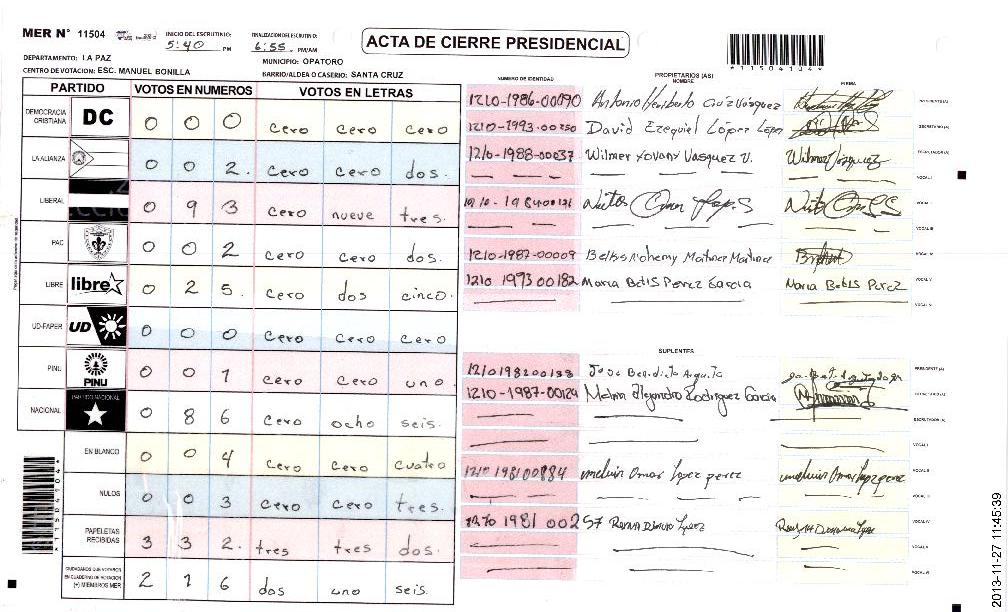 MER N° 11504
INICIO DEL ESCRUTINIO:
5:40 PM
FINALIZACION DEL ESCRUTINIO:
6:55 PM/AM
ACTA DE CIERRE PRESIDENCIAL
*11504104*
DEPARTAMENTO: LA PAZ
MUNICIPIO: OPATORO
CENTRO DE VOTACION: ESC. MANUEL BONILLA
BARRIO/ALDEA O CASERIO: SANTA CRUZ
PARTIDO VOTOS EN NUMEROS VOTOS EN LETRAS
DEMOCRACIA CRISTIANA DC 0 0 0 cero cero cero
LA ALIANZA 0 0 2. cero cero dos.
LIBERAL 0 9 3 cero nueve tres.
PAC 0 0 2 cero cero dos.
LIBRE libre 0 2 5. cero dos cinco.
UD-FAPER UD 0 0 0 cero cero cero
PINU PINU 0 0 1 cero cero uno.
NACIONAL PARTIDO NACIONAL 0 8 6 cero ocho seis.
EN BLANCO 0 0 4 cero cero cuatro
NULOS 0 0 3 cero cero tres.
PAPELETAS RECIBIDAS 3 3 2. tres tres dos.
CIUDADANOS QUE VOTARON EN CUADERNO DE VOTACION (+) MIEMBROS MER 2 1 6 dos uno seis.
NUMERO DE IDENTIDAD PROPIETARIOS (AS) NOMBRE FIRMA
1210-1986-00090 Antonio Heriberto Vasquez PRESIDENTE (A)
1210-1993-00250 David Ezequiel López SECRETARIO (A)
1210-1988-00037 Wilmer Yovany Vasquez V. Wilmer Vasquez ESCRUTADOR (A)
VOCAL I
VOCAL II
VOCAL III
1210-1987-00009 Martinez Martinez VOCAL IV
1210 1993 00182 Maria Betis Perez Garcia Maria Betis Perez VOCAL V
VOCAL VI
SUPLENTES
1210198200133 Jose Benedicto PRESIDENTE (A)
1210-1987-00129 Alejandro Rodriguez Garcia SECRETARIO (A)
ESCRUTADOR (A)
VOCAL I
1210 1981 00884 Omar Lopez perez Omar Lopez perez VOCAL II
VOCAL III
1210 1981 00257 Lopez VOCAL IV
VOCAL V
VOCAL VI
*11504104*
2013-11-27 11:45:39